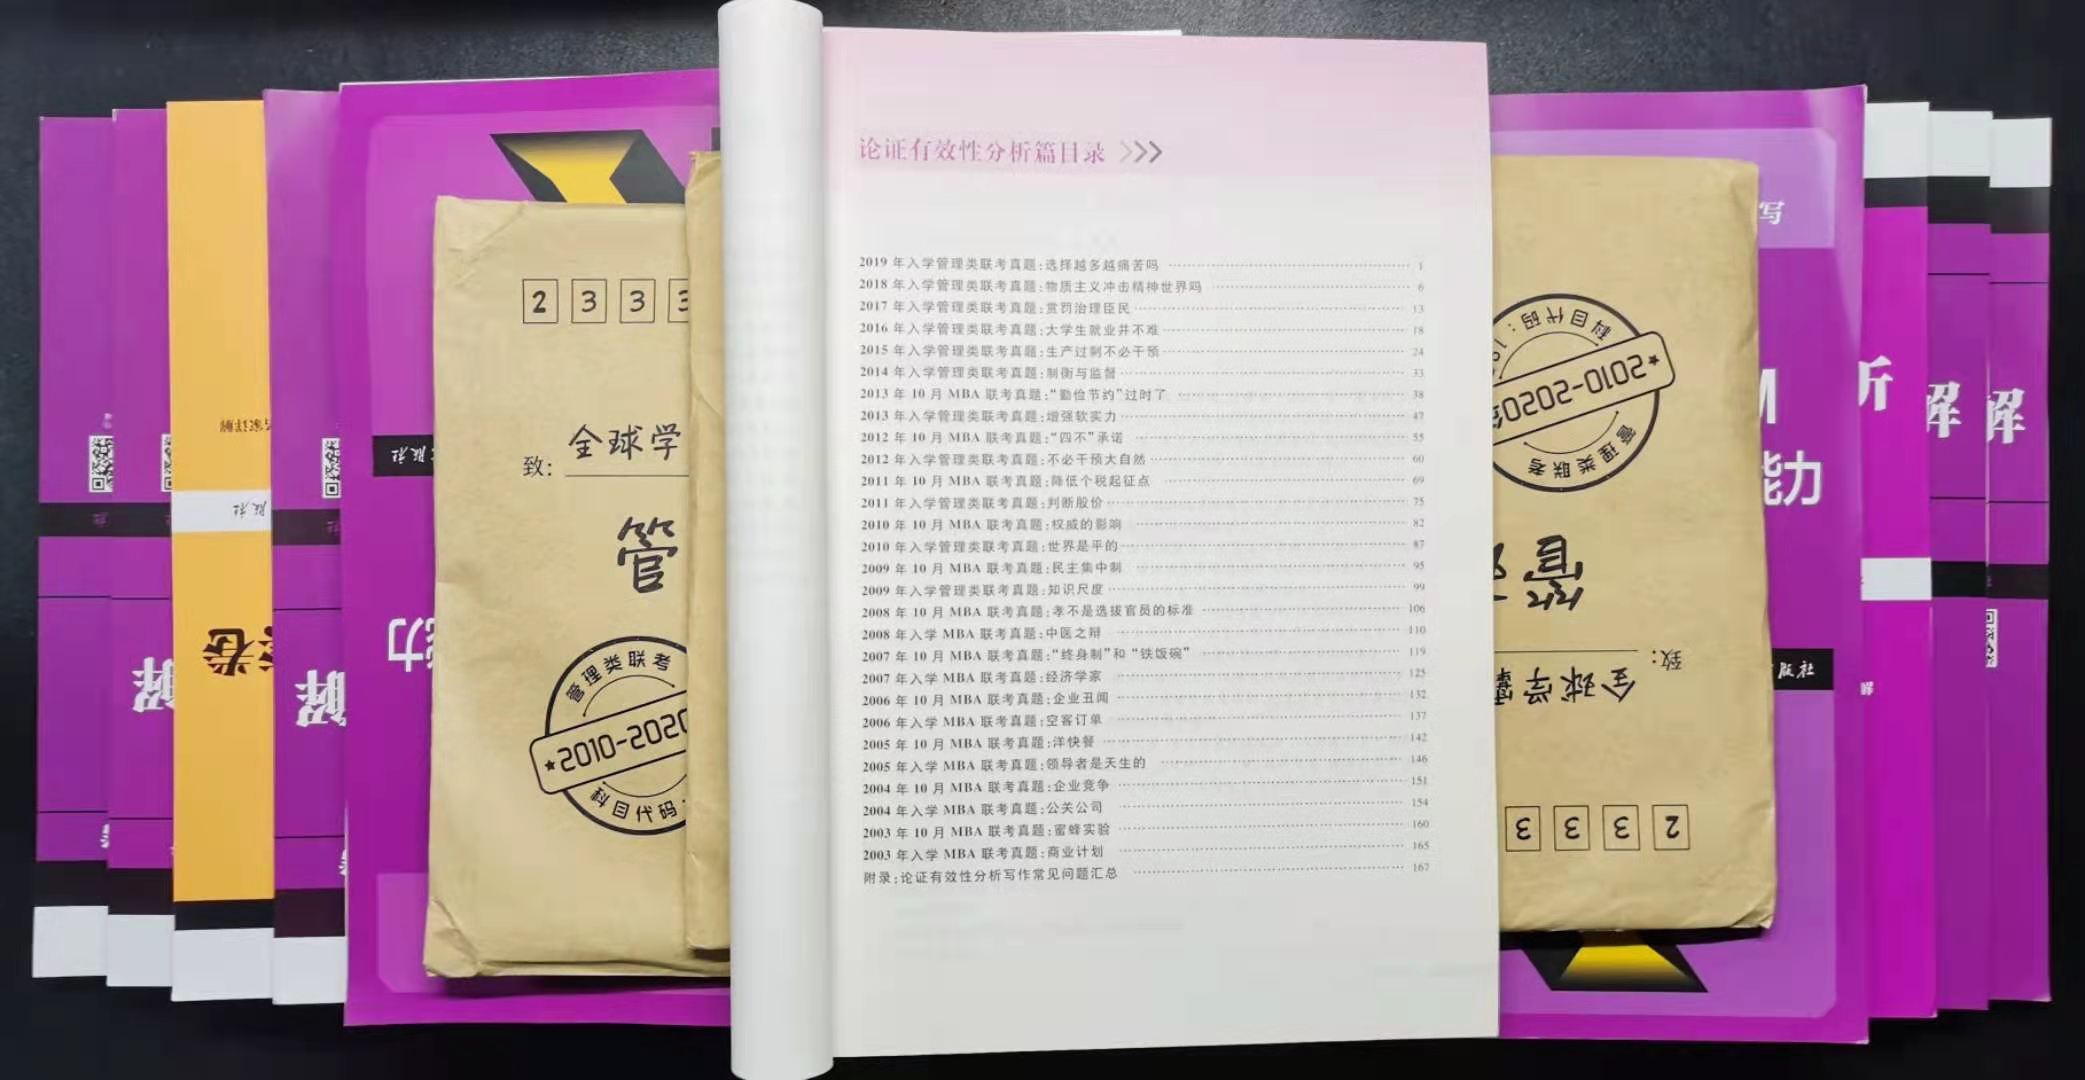 论证有效性分析篇目录 >>>
2019 年入学管理类联考真题:选择越多越痛苦吗 1
2018 年入学管理类联考真题:物质主义冲击精神世界吗 6
2017 年入学管理类联考真题:赏罚治理臣民 13
2016 年入学管理类联考真题:大学生就业并不难 18
2015 年入学管理类联考真题:生产过剩不必干预 24
2014 年入学管理类联考真题:制衡与监督 33
2013 年 10 月 MBA 联考真题:“勤俭节约”过时了 38
2013 年入学管理类联考真题:增强软实力 47
2012 年 10 月 MBA 联考真题:“四不”承诺 55
2012 年入学管理类联考真题:不必干预大自然 60
2011 年 10 月 MBA 联考真题:降低个税起征点 69
2011 年入学管理类联考真题:判断股价 75
2010 年 10 月 MBA 联考真题:权威的影响 82
2010 年入学管理类联考真题:世界是平的 87
2009 年 10 月 MBA 联考真题:民主集中制 95
2009 年入学管理类联考真题:知识尺度 99
2008 年 10 月 MBA 联考真题:孝不是选拔官员的标准 106
2008 年入学 MBA 联考真题:中医之辩 110
2007 年 10 月 MBA 联考真题:“终身制”和“铁饭碗” 119
2007 年入学 MBA 联考真题:经济学家 125
2006 年 10 月 MBA 联考真题:企业丑闻 132
2006 年入学 MBA 联考真题:空客订单 137
2005 年 10 月 MBA 联考真题:洋快餐 142
2005 年入学 MBA 联考真题:领导者是天生的 146
2004 年 10 月 MBA 联考真题:企业竞争 151
2004 年入学 MBA 联考真题:公关公司 154
2003 年 10 月 MBA 联考真题:蜜蜂实验 160
2003 年入学 MBA 联考真题:商业计划 165
附录:论证有效性分析写作常见问题汇总 167
2 3 3 3
致: 全球学
管
管理类联考
2010-2020
科目代码:
写
析
能力
解
解
科目代码:
2010-2020
管理类联考
管
致:
全球学
2 3 3 3
版社
力
解
解
卷